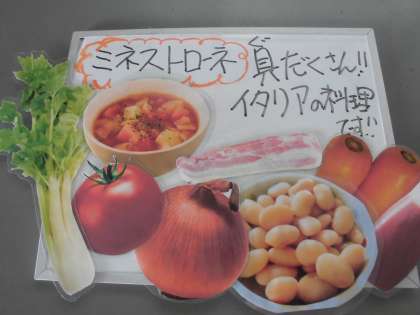 ぐ
ミネストローネ 具だくさん!!
イタリアの料理
です!!